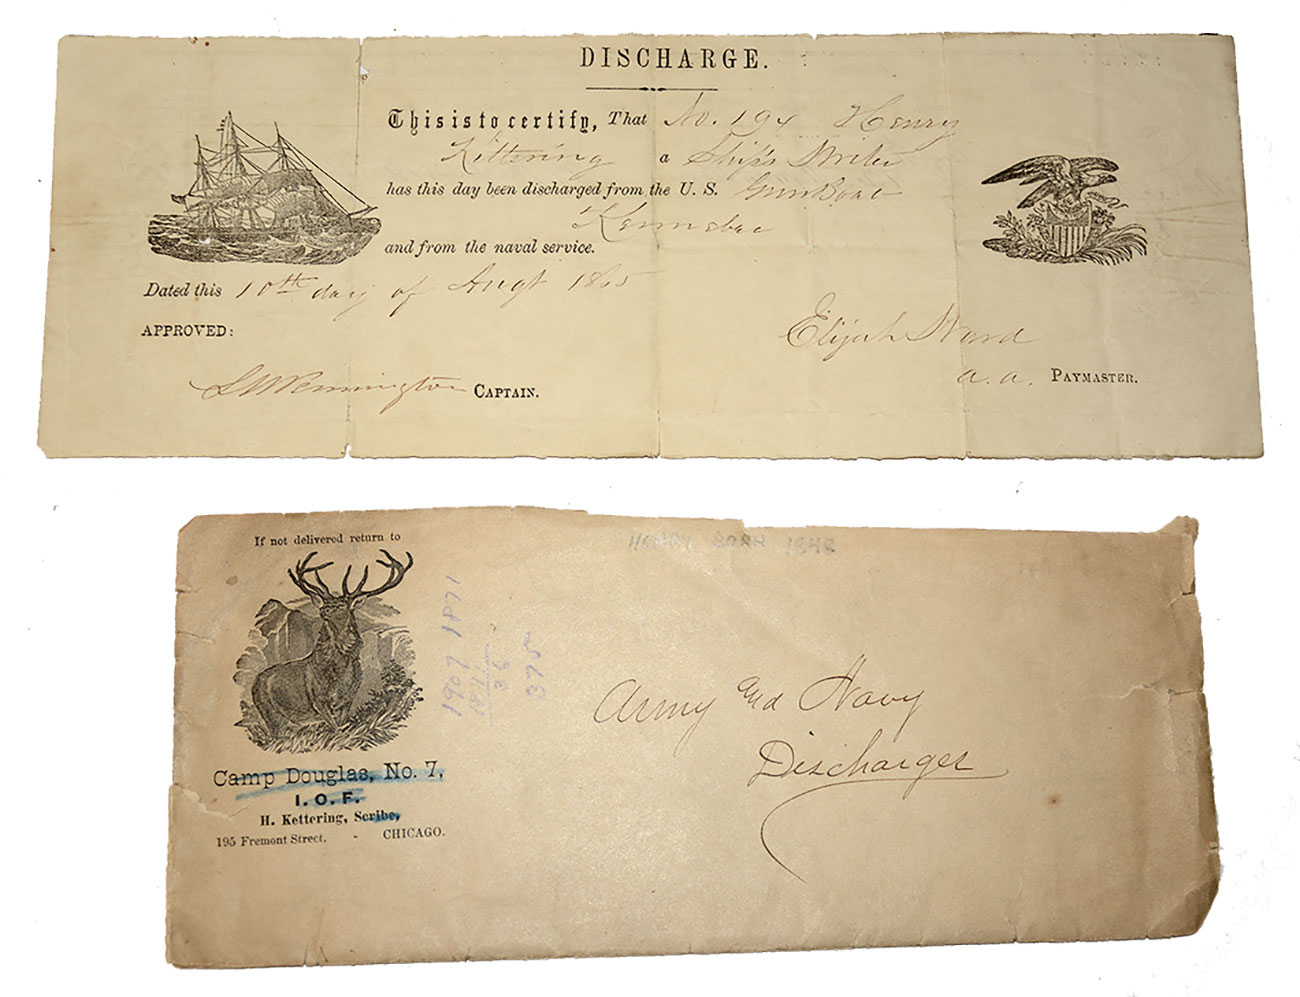 DISCHARGE.
This is to certify, That No. 194 Henry
Kittering a Ship's Writer
has this day been discharged from the U. S. GunBoat
Kennebec
and from the naval service.
Dated this 10th day of Augt 1865
APPROVED:
Elijah Ward
a. a. PAYMASTER.
Pennington CAPTAIN.
If not delivered return to
Camp Douglas, No. 7,
I. O. F.
H. Kettering, Scribe,
195 Fremont Street, - CHICAGO.
1907 1871
1871
36
375
Army and Navy
Discharges